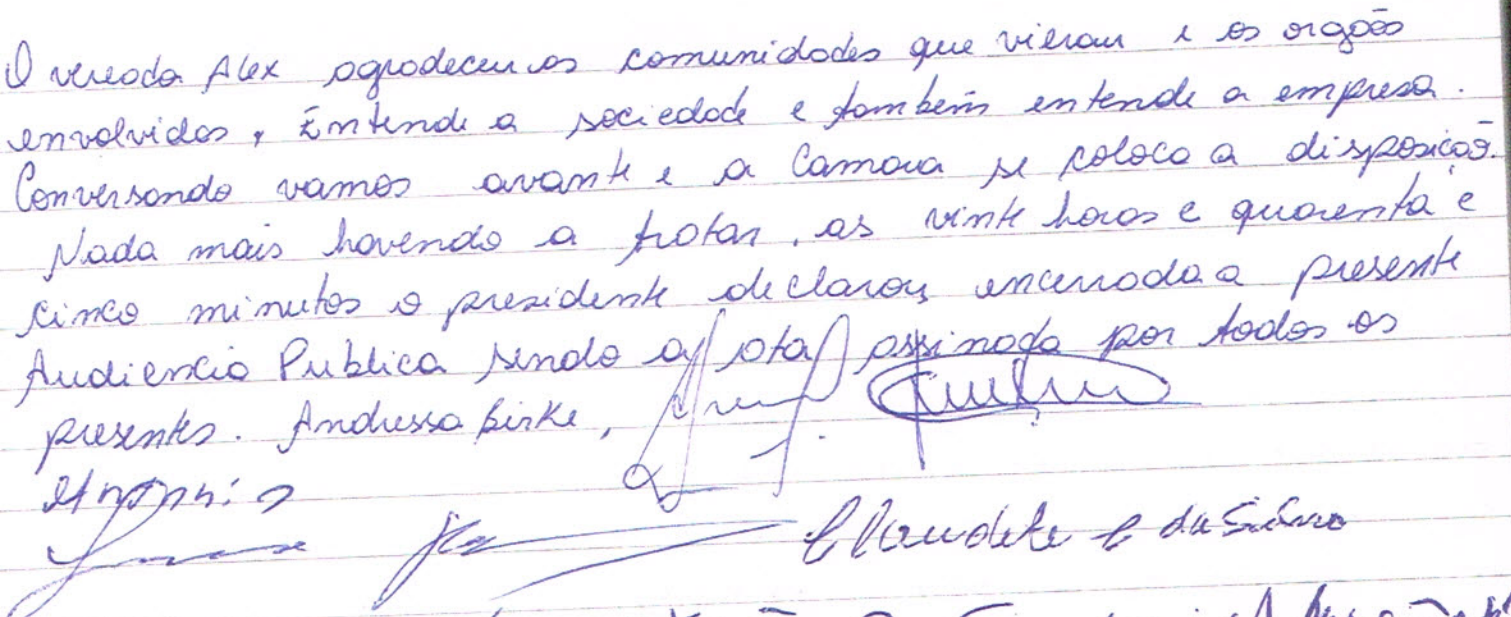 O vereado Alex agradeceu as comunidades que vieram e os orgãos
envolvidos, Entende a sociedade e também entende a empresa.
Conversando vamos avante e a Camara se coloco a disposição.
Nada mais havendo a tratar, as vinte horas e quarenta e
cinco minutos o presidente declarou encerrada a presente
Audiencia Publica sendo a ata assinada por todos os
presentes. Andressa Birke,
Antonio
Claudete C da Silva